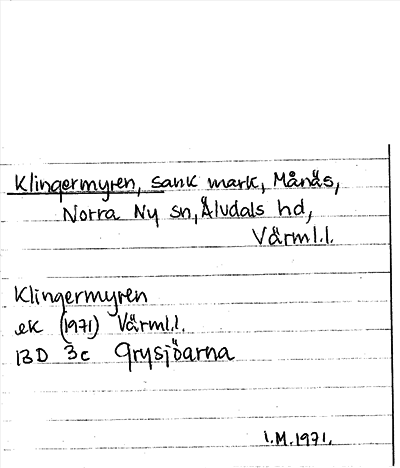 Klingermyren, sank mark, Månäs,
Norra Ny sn, Älvdals hd,
Värml.l.
Klingermyren
ek (1971) Värml.l.
13D 3c Grysjöarna
I.M. 1971.